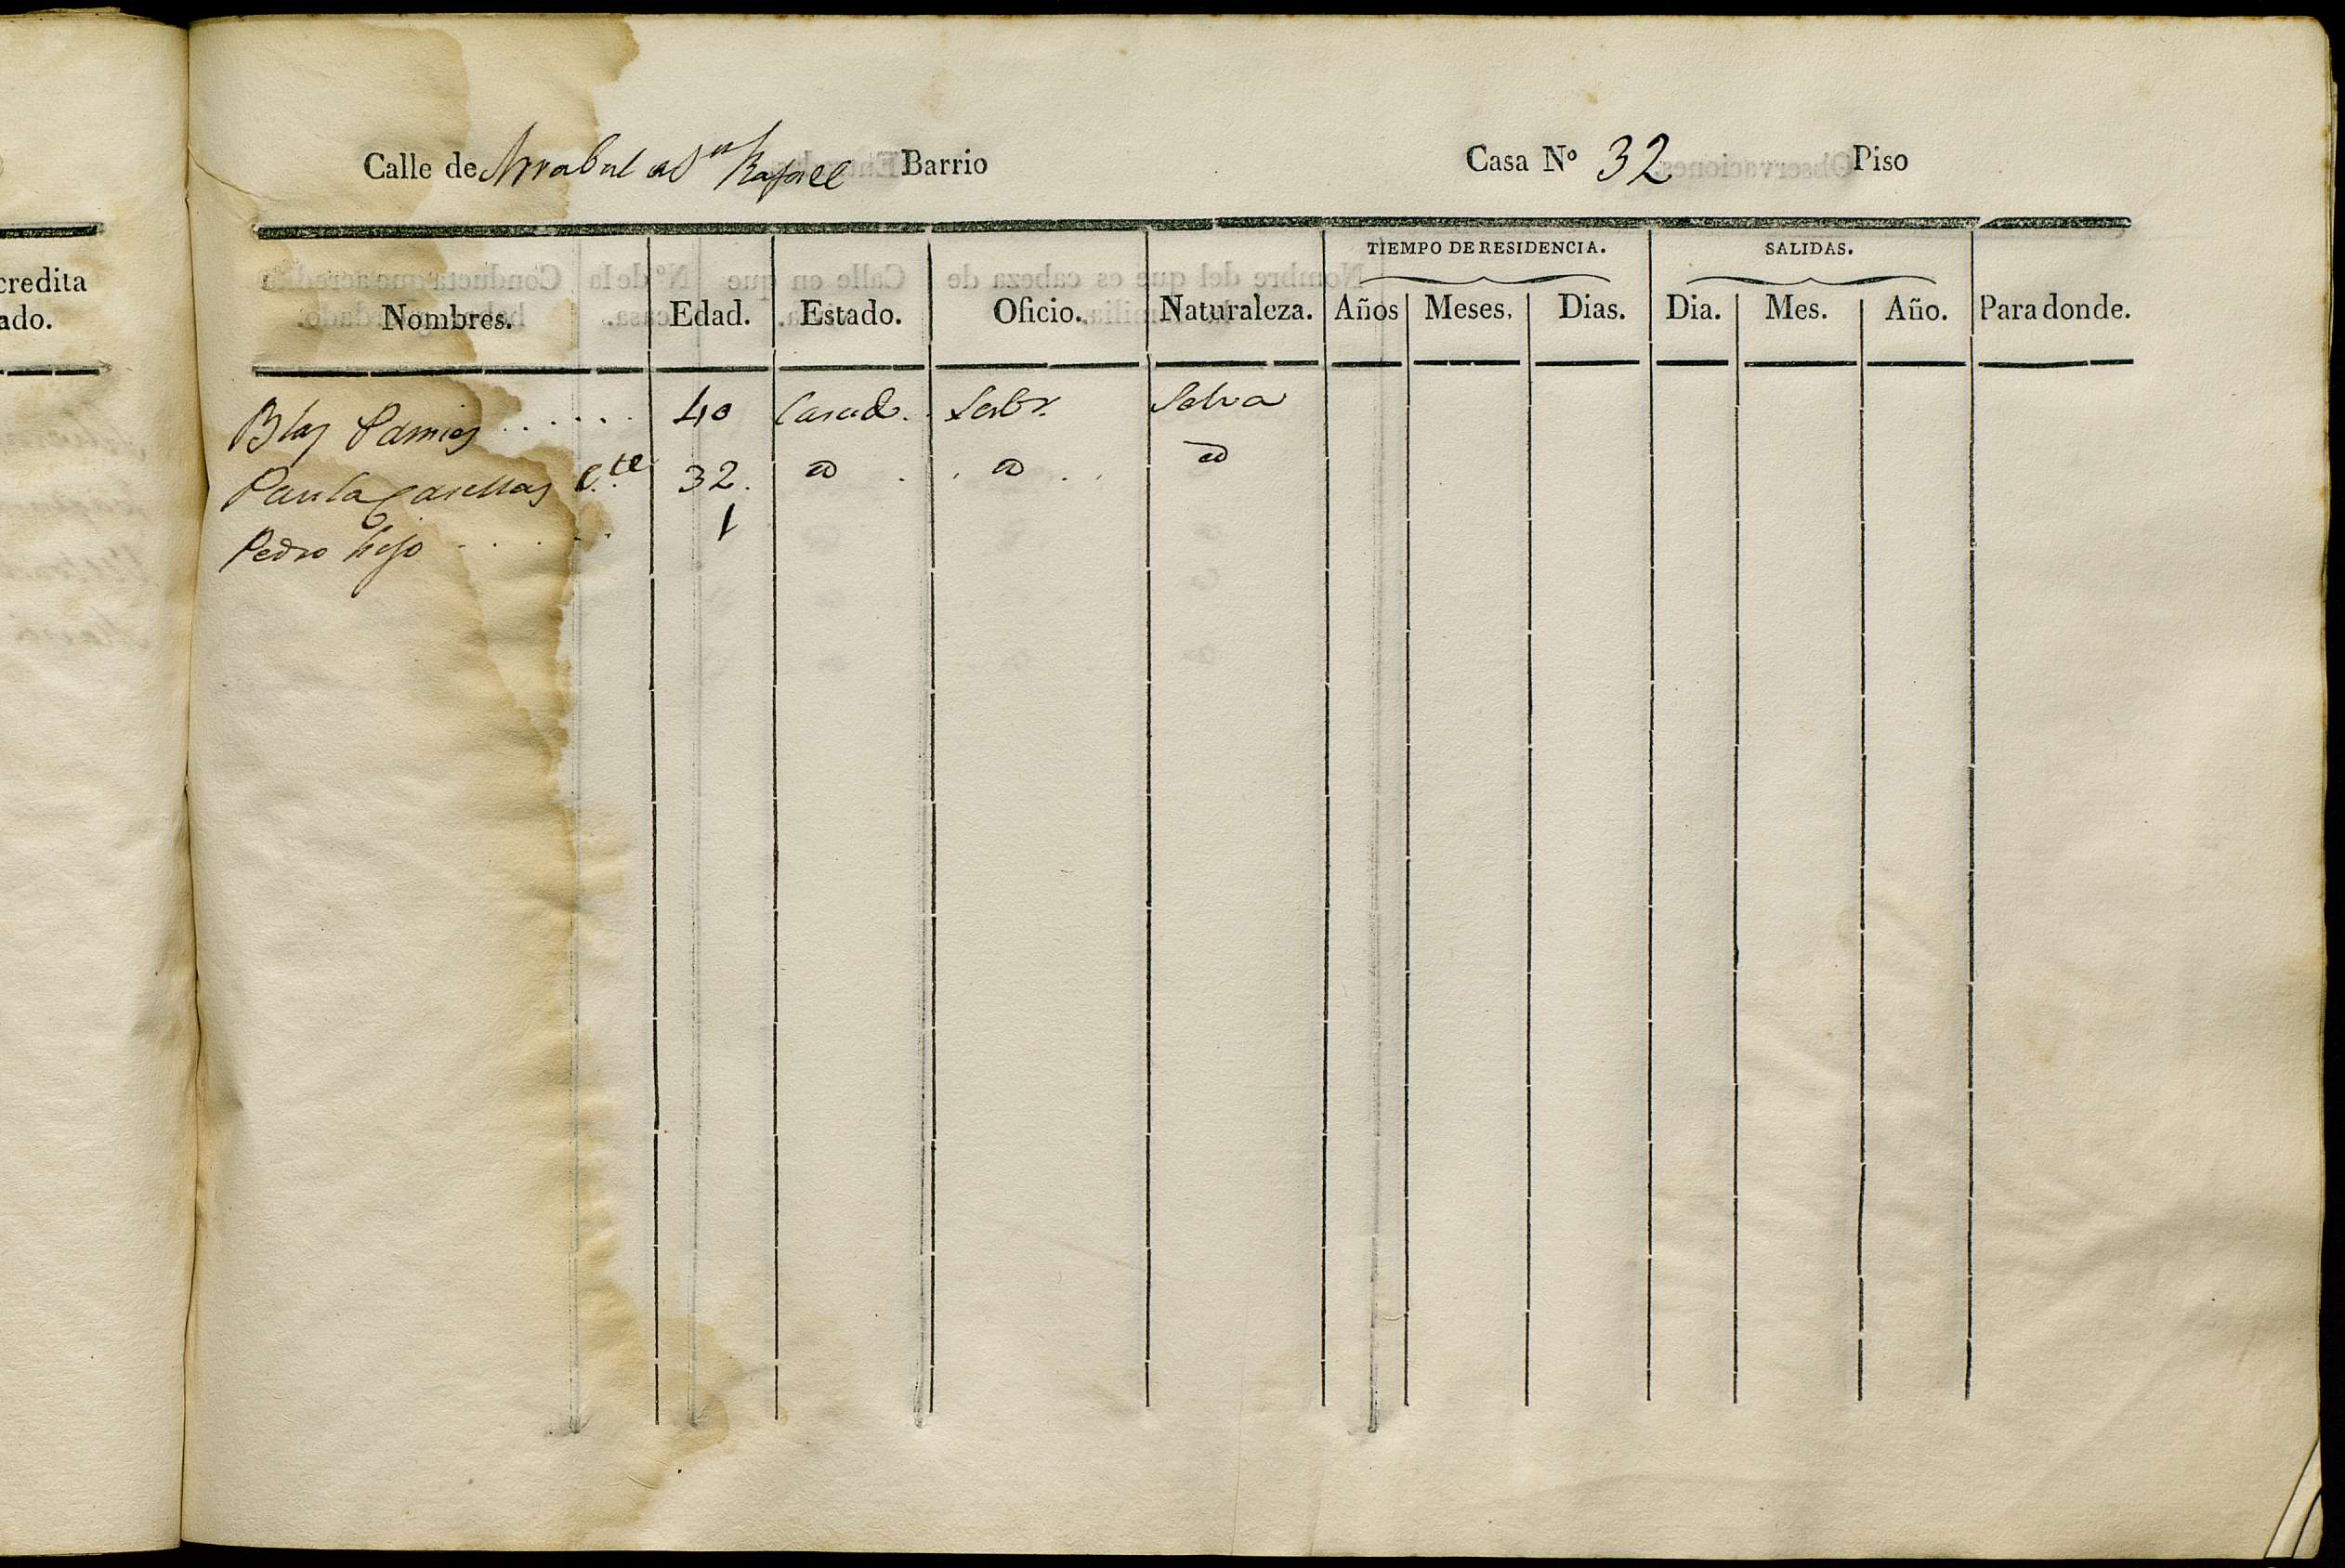 credita
ado.
Calle de Arrabal de Sn Rafael Barrio Casa Nº 32 Piso
TIEMPO DE RESIDENCIA. SALIDAS.
Nombres. Edad. Estado. Oficio. Naturaleza. Años Meses. Dias. Dia. Mes. Año. Para donde.
Blas Pamies 40 Casad. Labr. Selva
Paula Casellas 32.
Pedro hijo 1